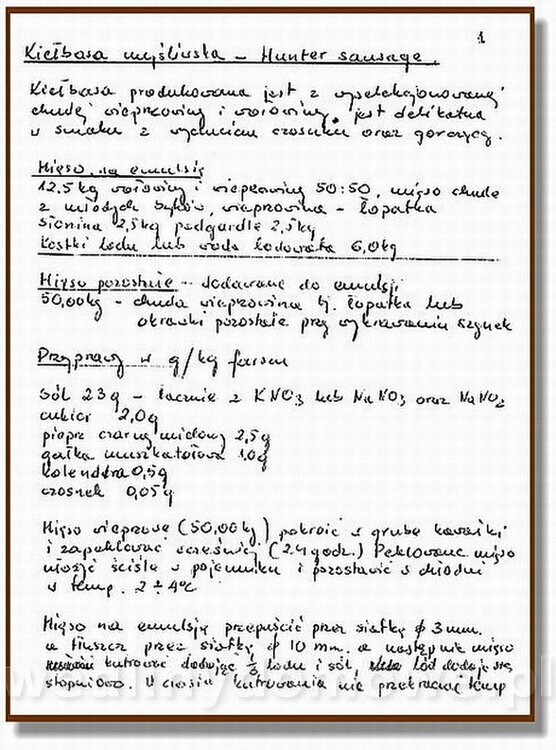 1
Kiełbasa myśliwska – Hunter sausage.
Kiełbasa produkowana jest z wyselekcjonowanej
chudej wieprzowiny i wołowiny. jest delikatna
w smaku z wyczuciem czosnku oraz gorczycy.
Mięso na emulsję
12,5 kg wołowiny i wieprzowiny 50:50, mięso chude
z młodych byków, wieprzowina – łopatka
słonina 2,5 kg podgardle 2,5 kg
kostki lodu lub woda lodowata 6,0 kg
Mięso pozostałe – dodawane do emulsji
50,00 kg – chuda wieprzowina tj. łopatka lub
okrawki pozostałe przy wykrawaniu szynek
Przyprawy w g/kg farszu
sól 23 g – łącznie z KNO3 lub NaNO3 oraz NaNO2
cukier 2,0 g
pieprz czarny mielony 2,5 g
gałka muszkatołowa 1,0 g
kolendra 0,5 g
czosnek 0,05 g
Mięso wieprzowe (50,00 kg) pokroić w grube kawałki
i zapeklować wcześniej (24 godz.) Peklowane mięso
włożyć ściśle w pojemniku i pozostawić w chłodni
w temp. 2 ÷ 4°C
Mięso na emulsję przepuścić przez siatkę φ 3 mm.
a tłuszcz przez siatkę φ 10 mm. a następnie mięso
kutrować dodając 1/3 lodu i sól, lód dodaje się
stopniowo. W czasie kutrowania nie przekraczać temp
wedlinydomowe.pl